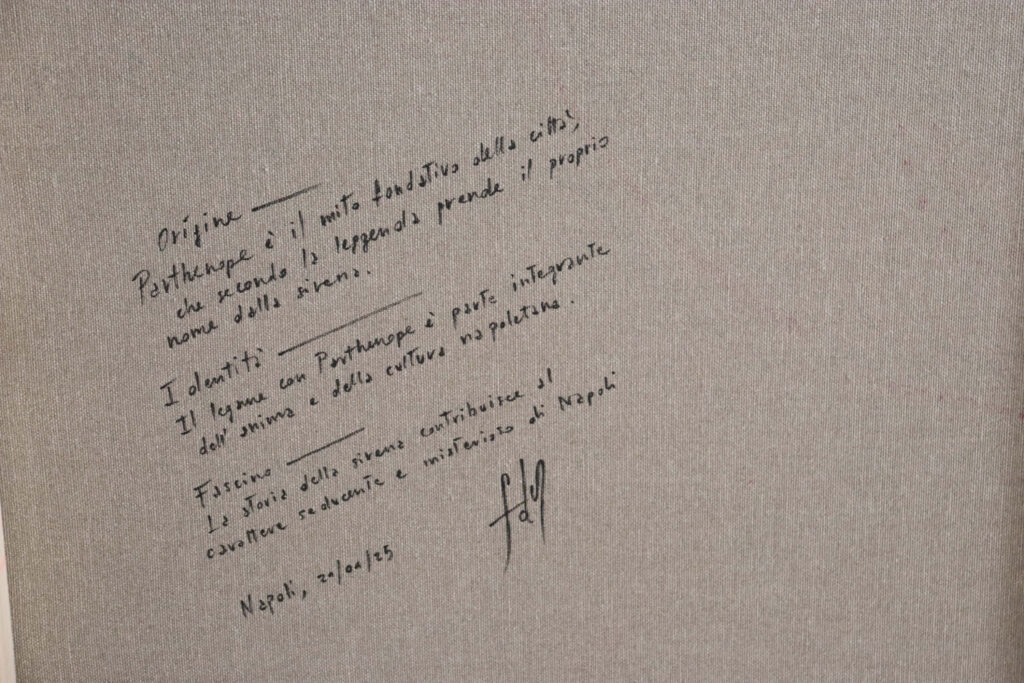 Origine
Parthenope è il mito fondativo della città,
che secondo la leggenda prende il proprio
nome dalla sirena.
Identità
Il legame con Parthenope è parte integrante
dell'anima e della cultura napoletana.
Fascino
La storia della sirena contribuisce al
carattere seducente e misterioso di Napoli
Napoli,